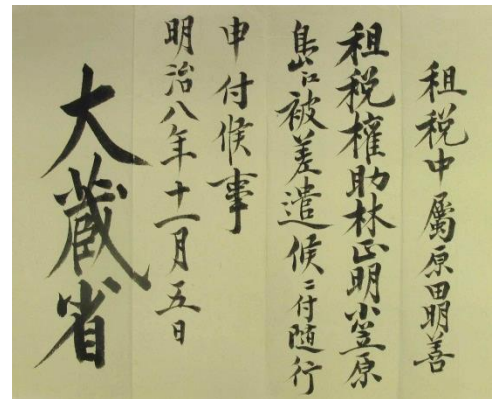 租税中属原田明善
租税権助林正明小笠原
島江被差遣候ニ付随行
申付候事
明治八年十一月五日
大蔵省